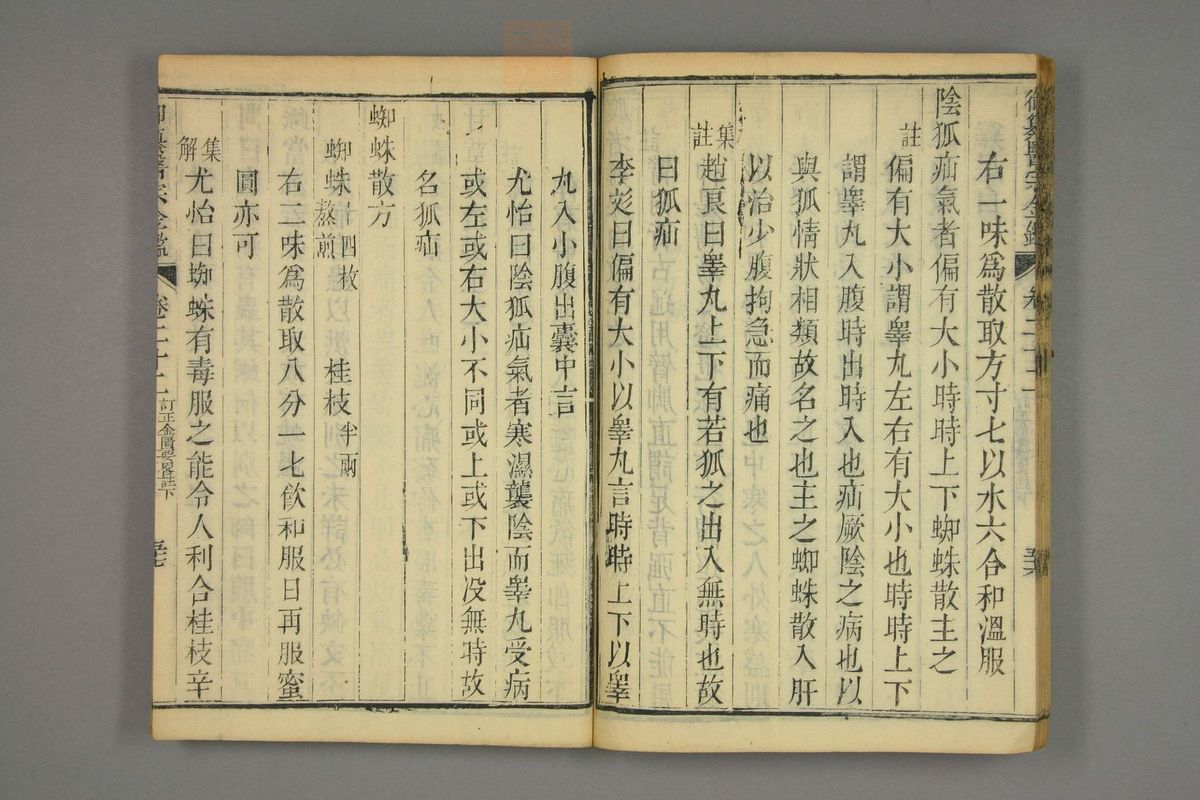 御纂醫宗金鑑 卷二十二
右一味為散取方寸匕以水六合和溫服
陰狐疝氣者偏有大小時時上下蜘蛛散主之
註 偏有大小謂睪丸左右有大小也時時上下
謂睪丸入腹時出時入也疝厥陰之病也以
與狐情狀相類故名之也主之蜘蛛散入肝
以治少腹拘急而痛也
集註 趙良曰睪丸上下有若狐之出入無時也故
曰狐疝
李彣曰偏有大小以睪丸言時時上下以睪
丸入小腹出囊中言
尤怡曰陰狐疝氣者寒濕襲陰而睪丸受病
或左或右大小不同或上或下出没無時故
名狐疝
蜘蛛散方
蜘蛛 十四枚熬煎 桂枝 半兩
右二味為散取八分一匕飲和服日再服蜜
圓亦可
集解 尤怡曰蜘蛛有毒服之能令人利合桂枝辛
御纂醫宗金鑑 卷二十二 訂正金匱要畧註下